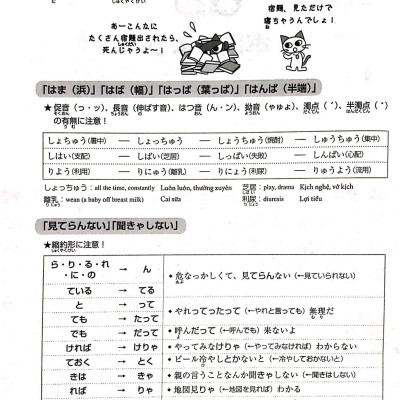 宿題、見ただけで
寝ちゃうんでしょ！
あーこんなに
たくさん宿題出されたら、
死んじゃうよ～！
「はま（浜）」「はば（幅）」「はっぱ（葉っぱ）」「はんぱ（半端）」
★促音（っ・ッ）、長音（伸ばす音）、はつ音（ん・ン）、拗音（ゃゅょ）、濁点（゛）、半濁点（゜）
の有無に注意！
しょちゅう（暑中） ― しょっちゅう ― しょうちゅう（焼酎） ― しゅうちゅう（集中）
しはい（支配） ― しばい（芝居） ― しっぱい（失敗） ― しんぱい（心配）
りよう（利用） ― りにゅう（離乳） ― りにょう（利尿） ― りゅうよう（流用）
しょっちゅう：all the time, constantly Luôn luôn, thường xuyên 芝居：play, drama Kịch nghệ, vở kịch
離乳：wean (a baby off breast milk) Cai sữa 利尿：diuresis Lợi tiểu
「見てらんない」「聞きゃしない」
★縮約形に注意！
ら・り・る・れ・に・の → ん ・危なっかしくて、見てらんない（←見ていられない）
ている → てる
と → って ・やれってったって（←やれと言っても）無理だ
ても → たって
でも → だって ・呼んだって（←呼んでも）来ないよ
ければ → けりゃ ・やってみなけりゃ（←やってみなければ）わからない
ておく → とく ・ビール冷やしとかないと（←冷やしておかないと）
きは → きゃ ・親の言うことなんか聞きゃしない（←聞きはしない）
れば → りゃ ・地図見りゃ（←地図を見れば）わかる